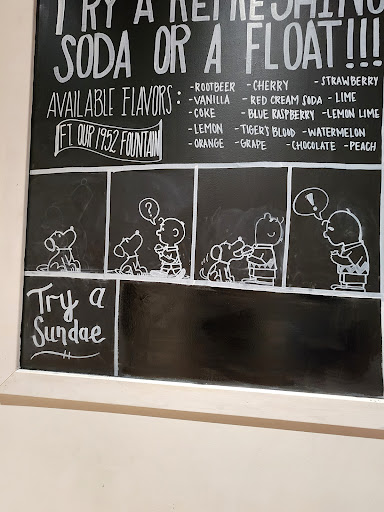 TRY A REFRESHING
SODA OR A FLOAT!!!
AVAILABLE FLAVORS:
FT. OUR 1952 FOUNTAIN
-ROOTBEER -CHERRY -STRAWBERRY
-VANILLA -RED CREAM SODA -LIME
-COKE -BLUE RASPBERRY -LEMON LIME
-LEMON -TIGER'S BLOOD -WATERMELON
-ORANGE -GRAPE -CHOCOLATE -PEACH
?
!
Try a
Sundae